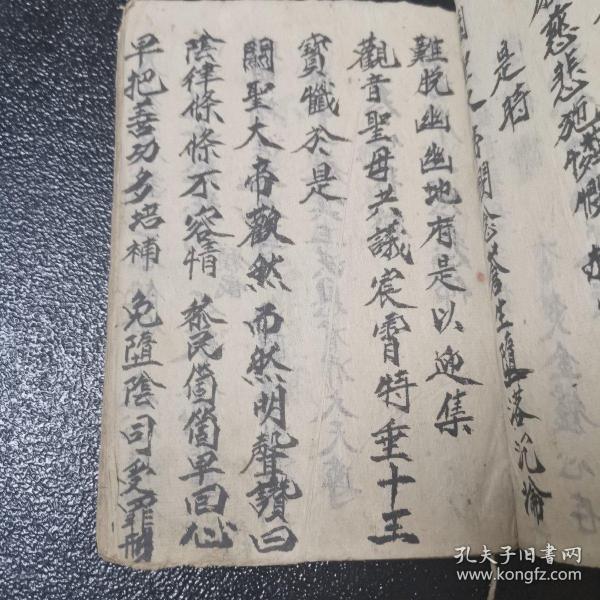 慈悲
是時
蒼生墮落沉淪
難脫幽幽地府是以迎集
觀音聖母共議宸霄特垂十王
寶懺於是
關聖大帝歡然而然明聲讚曰
陰律條條不容情 黎民箇箇早回心
早把善功多培補 免墮陰司受罪刑
孔夫子旧書网
www.kongfz.com